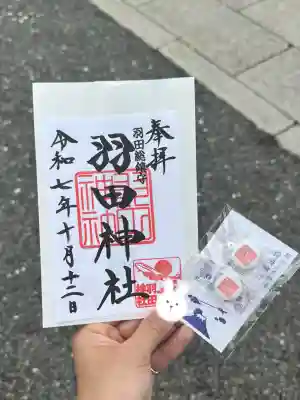 奉拝
羽田総鎮守
羽田神社
令和七年十月十二日